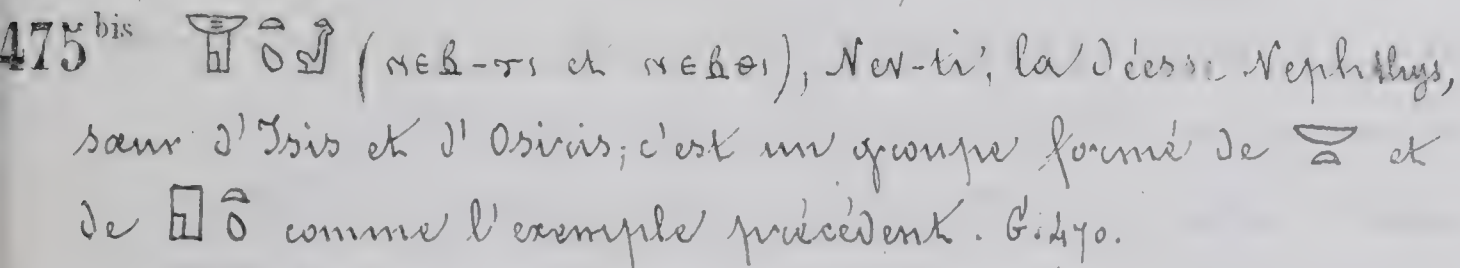 475 bis 𓉠𓏏𓆇𓁐 (ⲛⲉⲃ-ⲧⲓ et ⲛⲉⲃⲑⲓ), Nev-ti, la Déesse Nephthys,
sœur d'Isis et d'Osiris; c'est un groupe formé de 𓎟𓏏 et
de 𓉗𓏏𓆇 comme l'exemple précédent. G. 470.